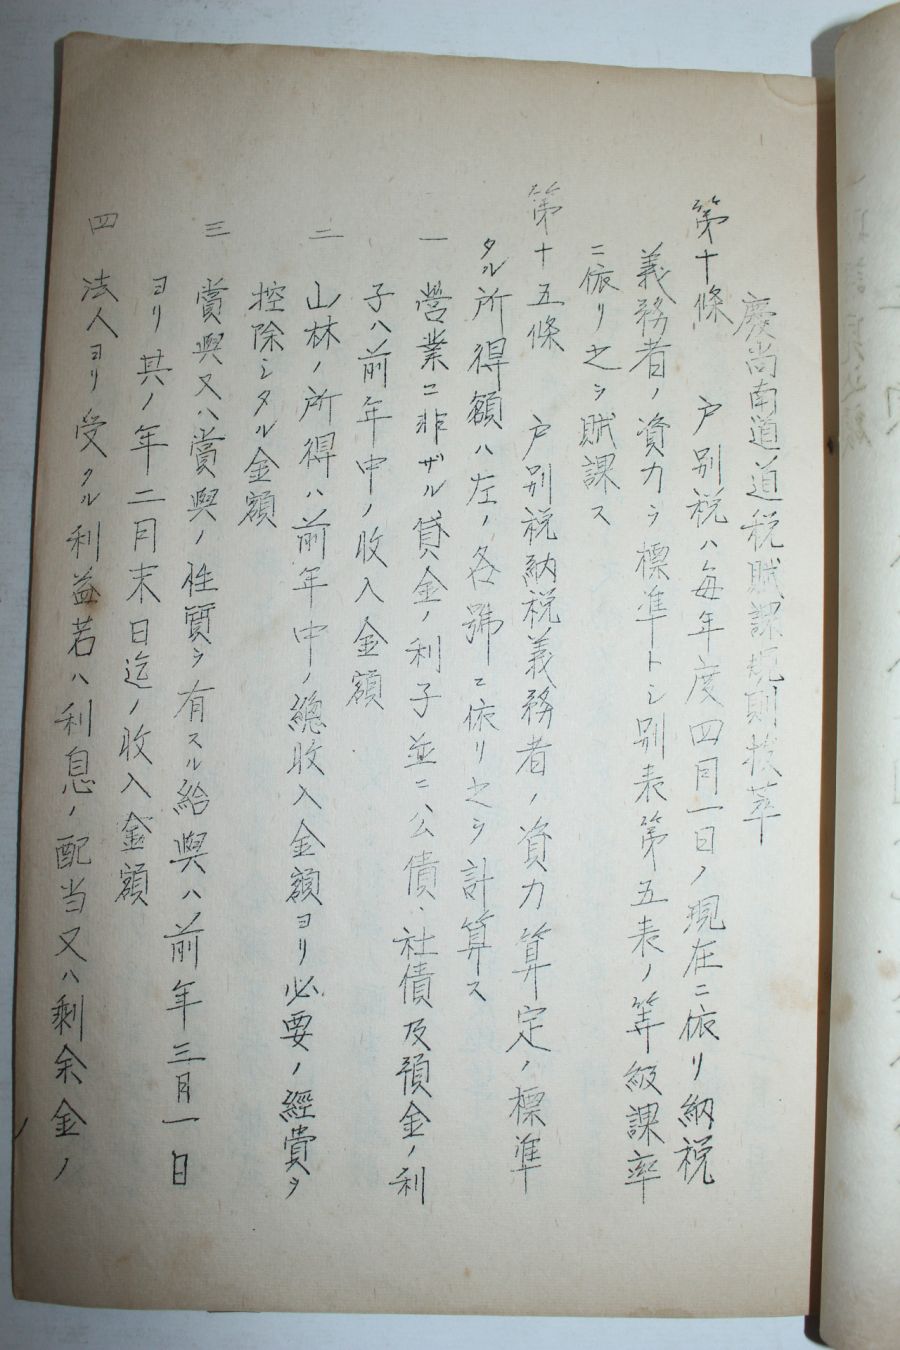 慶尚南道道税賦課規則抜萃
第十條　戸別税ハ毎年度四月一日ノ現在ニ依リ納税
義務者ノ資力ヲ標準トシ別表第五表ノ等級課率
ニ依リ之ヲ賦課ス
第十五條　戸別税納税義務者ノ資力算定ノ標準
タル所得額ハ左ノ各號ニ依リ之ヲ計算ス
一　營業ニ非ザル貸金ノ利子並ニ公債、社債及預金ノ利
子ハ前年中ノ收入金額
二　山林ノ所得ハ前年中ノ總收入金額ヨリ必要ノ經費ヲ
控除シタル金額
三　賞與又ハ賞與ノ性質ヲ有スル給與ハ前年三月一日
ヨリ其ノ年二月末日迄ノ收入金額
四　法人ヨリ受クル利益若ハ利息ノ配当又ハ剰余金ノ